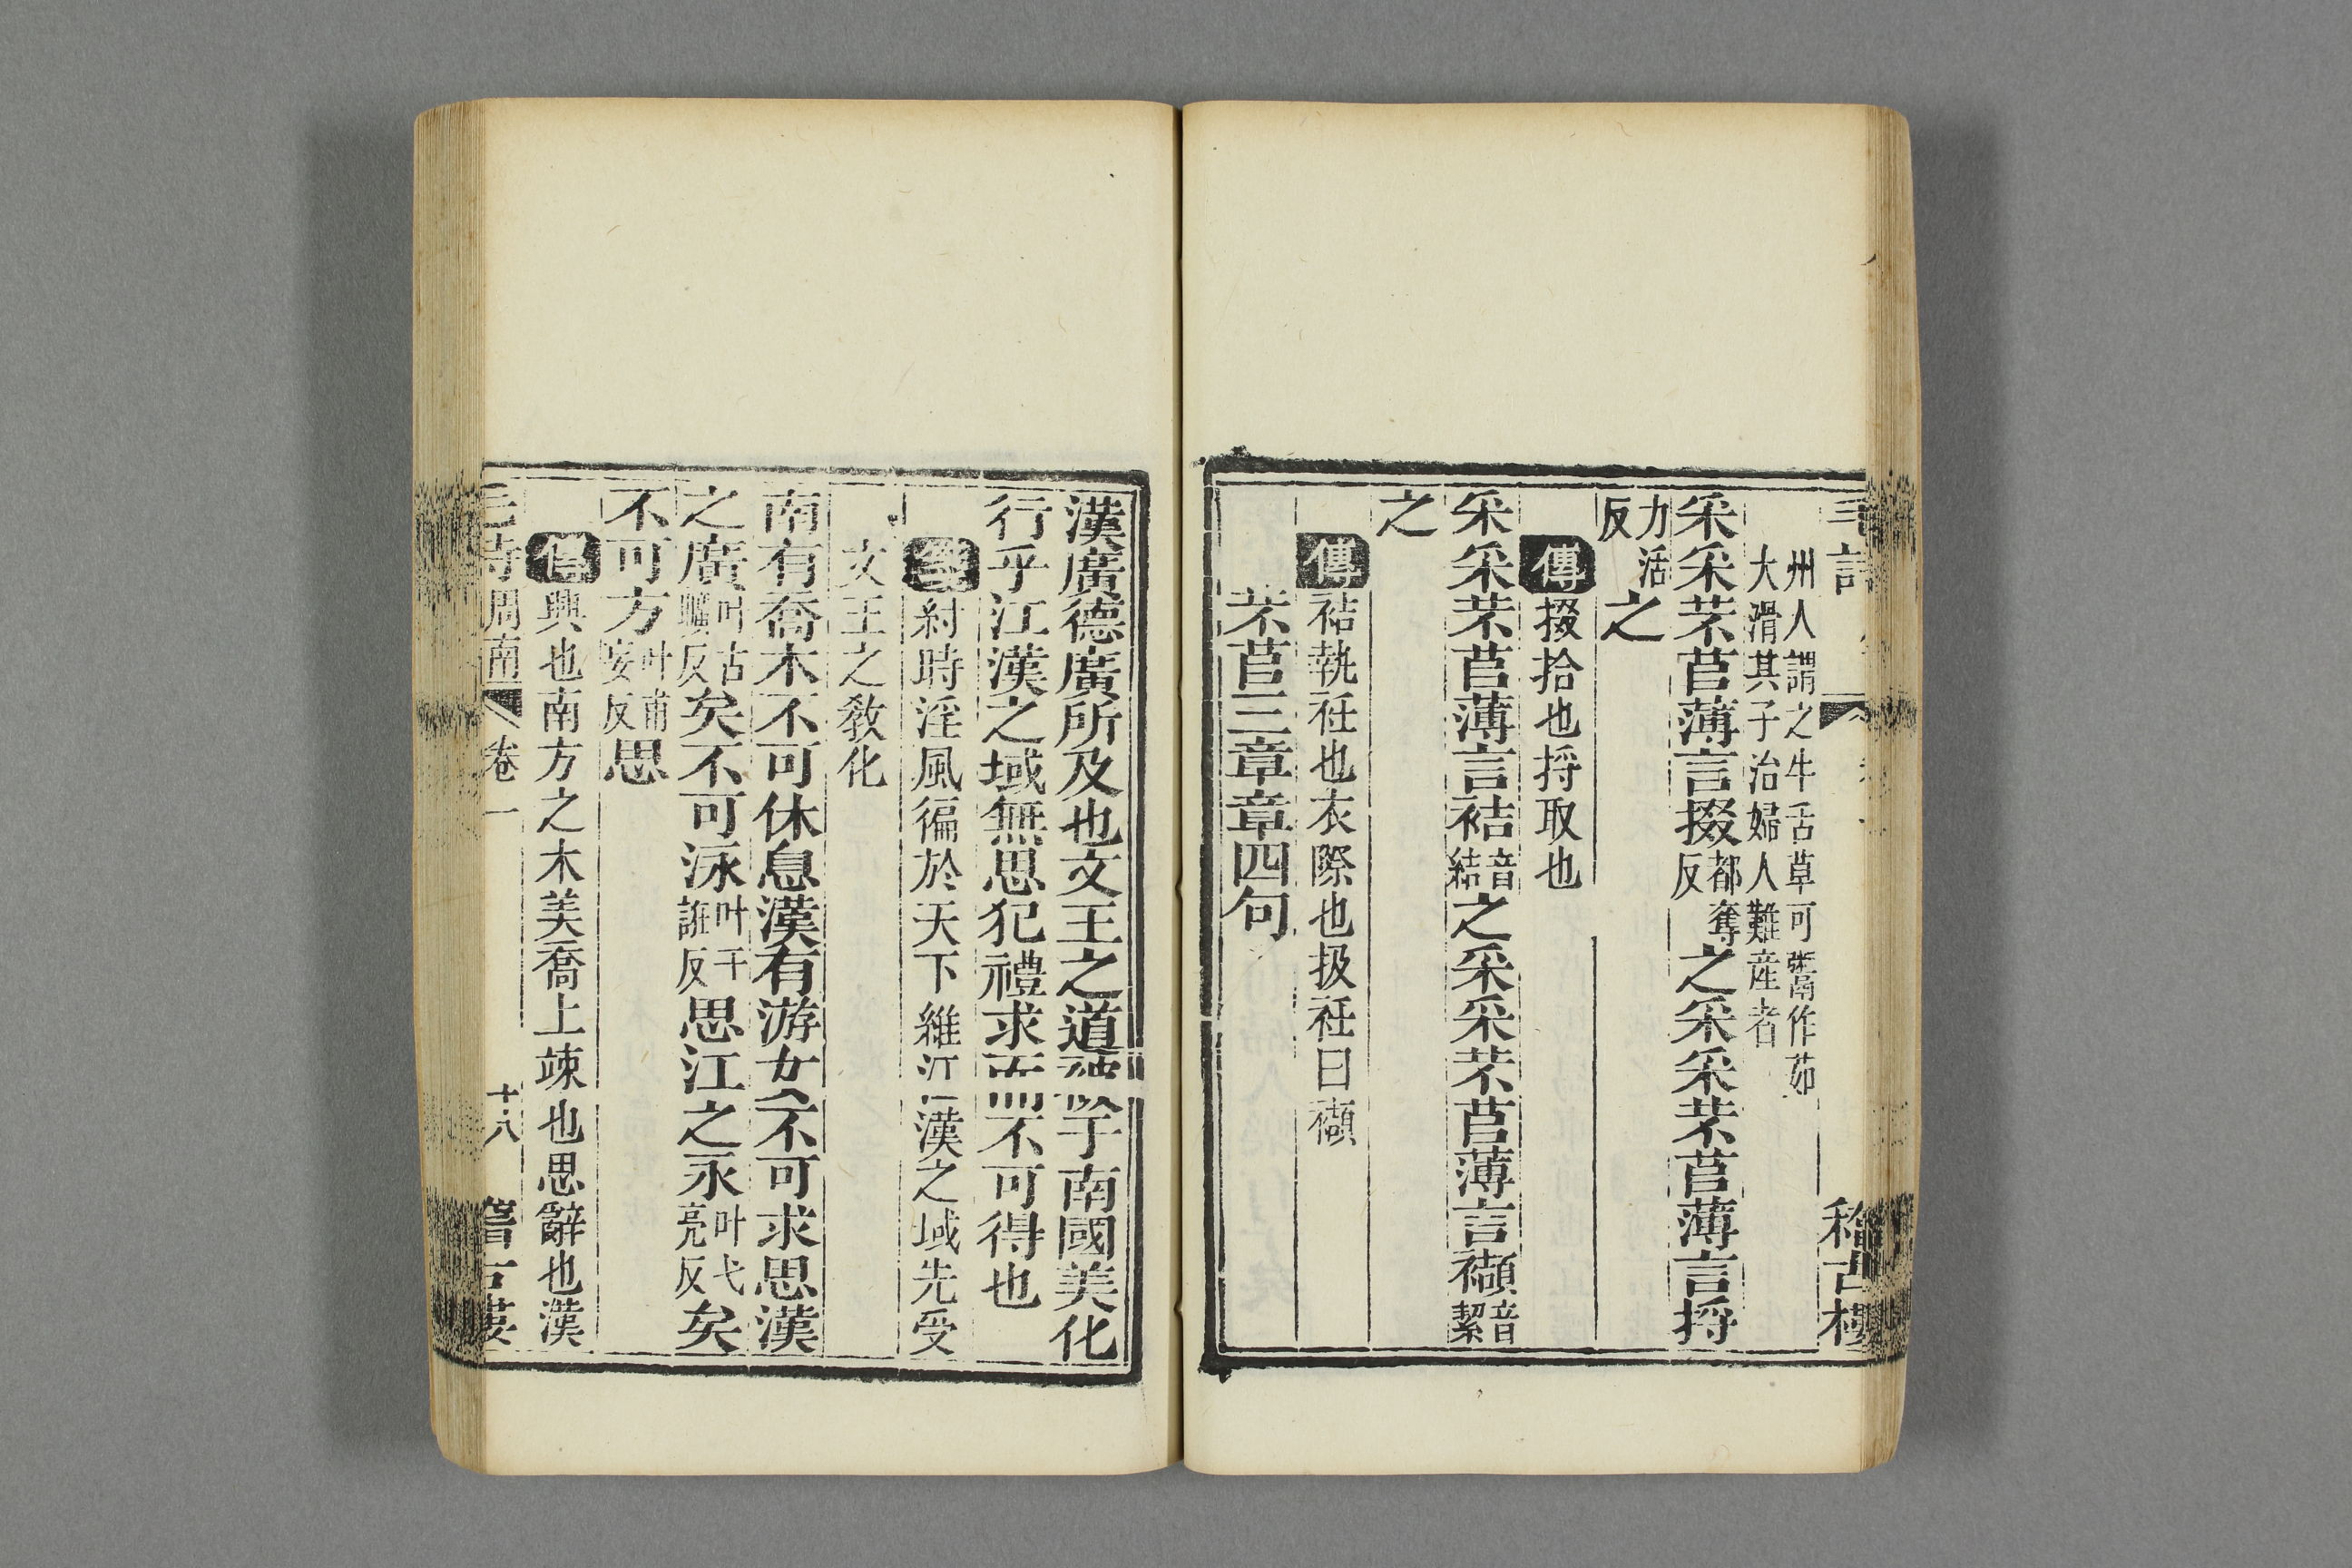 毛詩
稽古樓
州人謂之牛舌草可鬻作茹
大滑其子治婦人難産者
采采芣苢薄言掇都奪反之采采芣苢薄言捋
力活反之
傳掇拾也捋取也
采采芣苢薄言袺音結之采采芣苢薄言襭音絜
之
傳袺執衽也衣際也扱衽曰襭
芣苢三章章四句
漢廣德廣所及也文王之道被于南國美化
行乎江漢之域無思犯禮求而不可得也
箋紂時淫風徧於天下維江漢之域先受
文王之教化
南有喬木不可休息漢有游女不可求思漢
之廣叶古曠反矣不可泳叶于誑反思江之永叶弋亮反矣
不可方叶甫妄反思
傳興也南方之木美喬上竦也思辭也漢
毛詩周南 卷一 十八 稽古樓